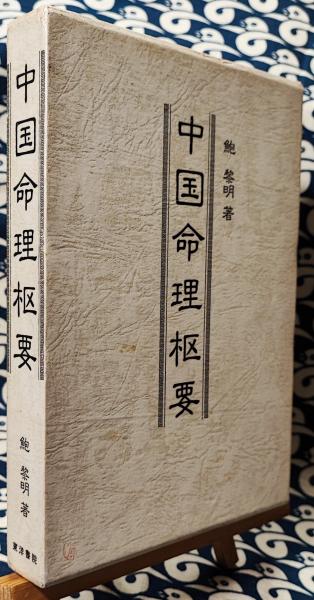 中国命理枢要
鮑 黎明 著
東洋書院
中国命理枢要
鮑 黎明 著